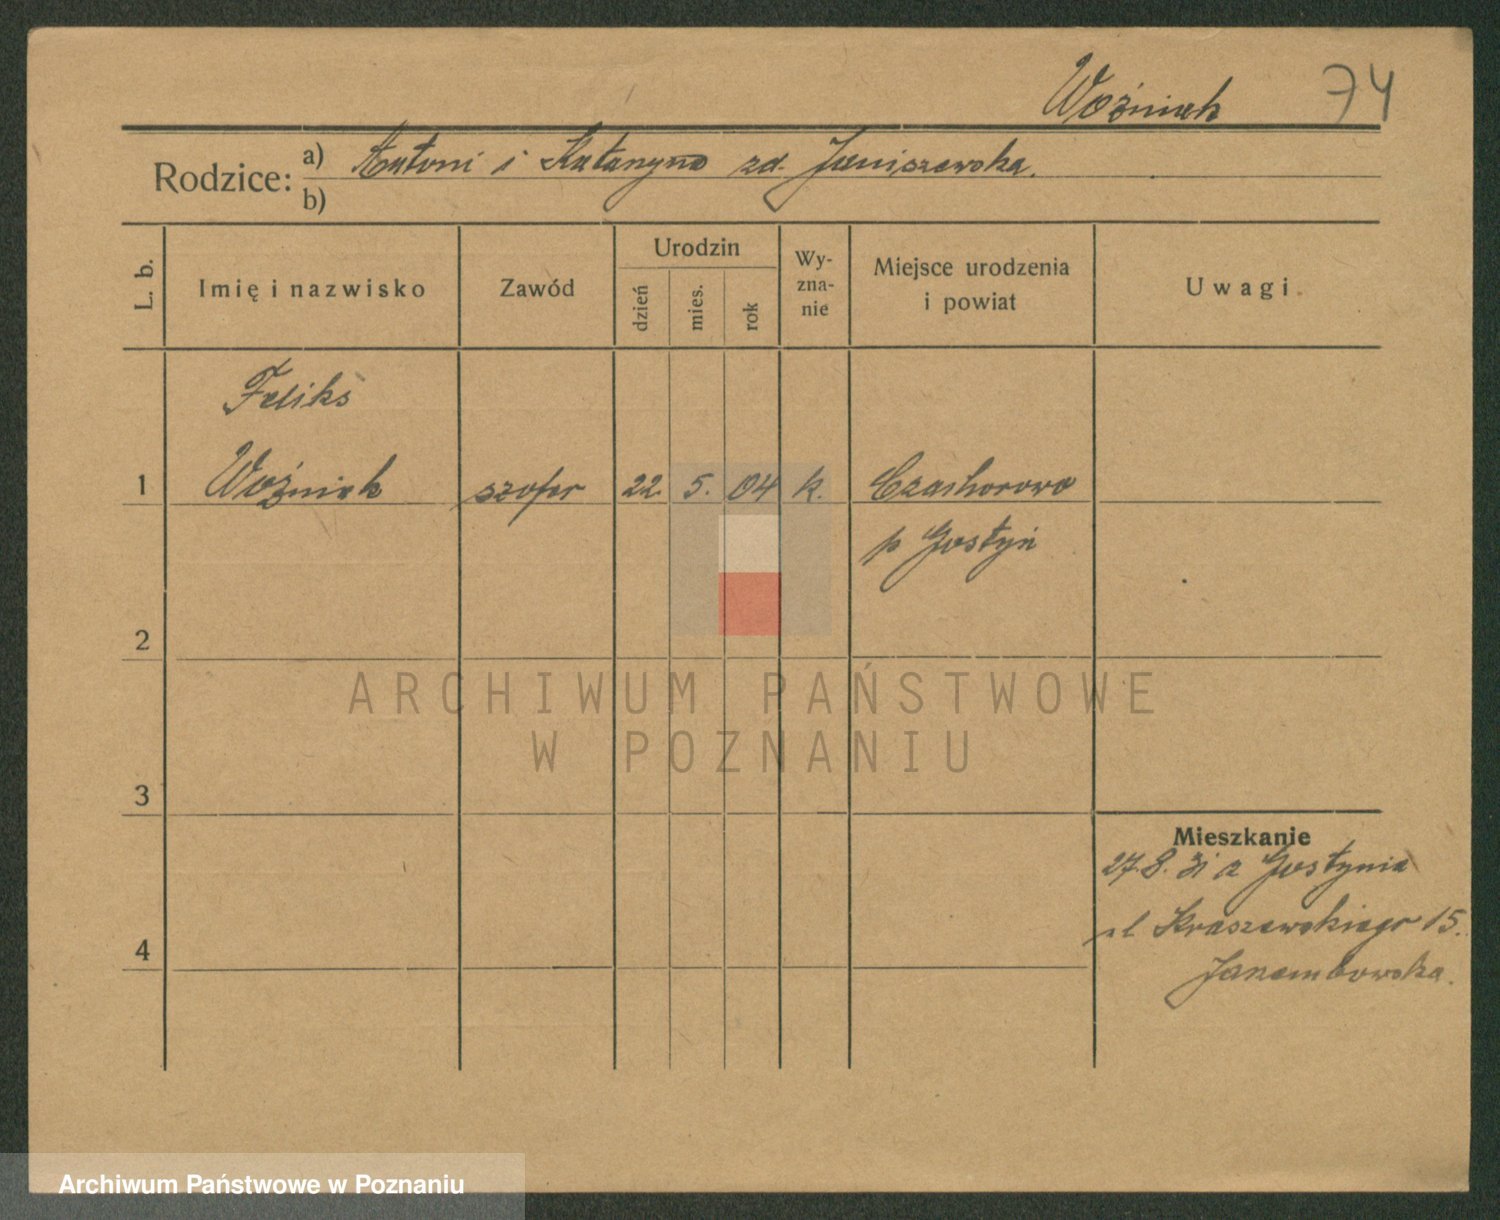 Woźniak 74
Rodzice: a) Antoni i Katarzyna zd. Janiszewska.
b)
L. b. Imię i nazwisko Zawód Urodzin dzień mies. rok Wy-zna-nie Miejsce urodzenia i powiat Uwagi
Feliks
1 Woźniak szofer 22. 5. 04 k. Czachorowo
p Gostyń
2
ARCHIWUM PAŃSTWOWE
W POZNANIU
3
Mieszkanie
27.8.31 z Gostynia
ul Kraszewskiego 15.
4
Archiwum Państwowe w Poznaniu